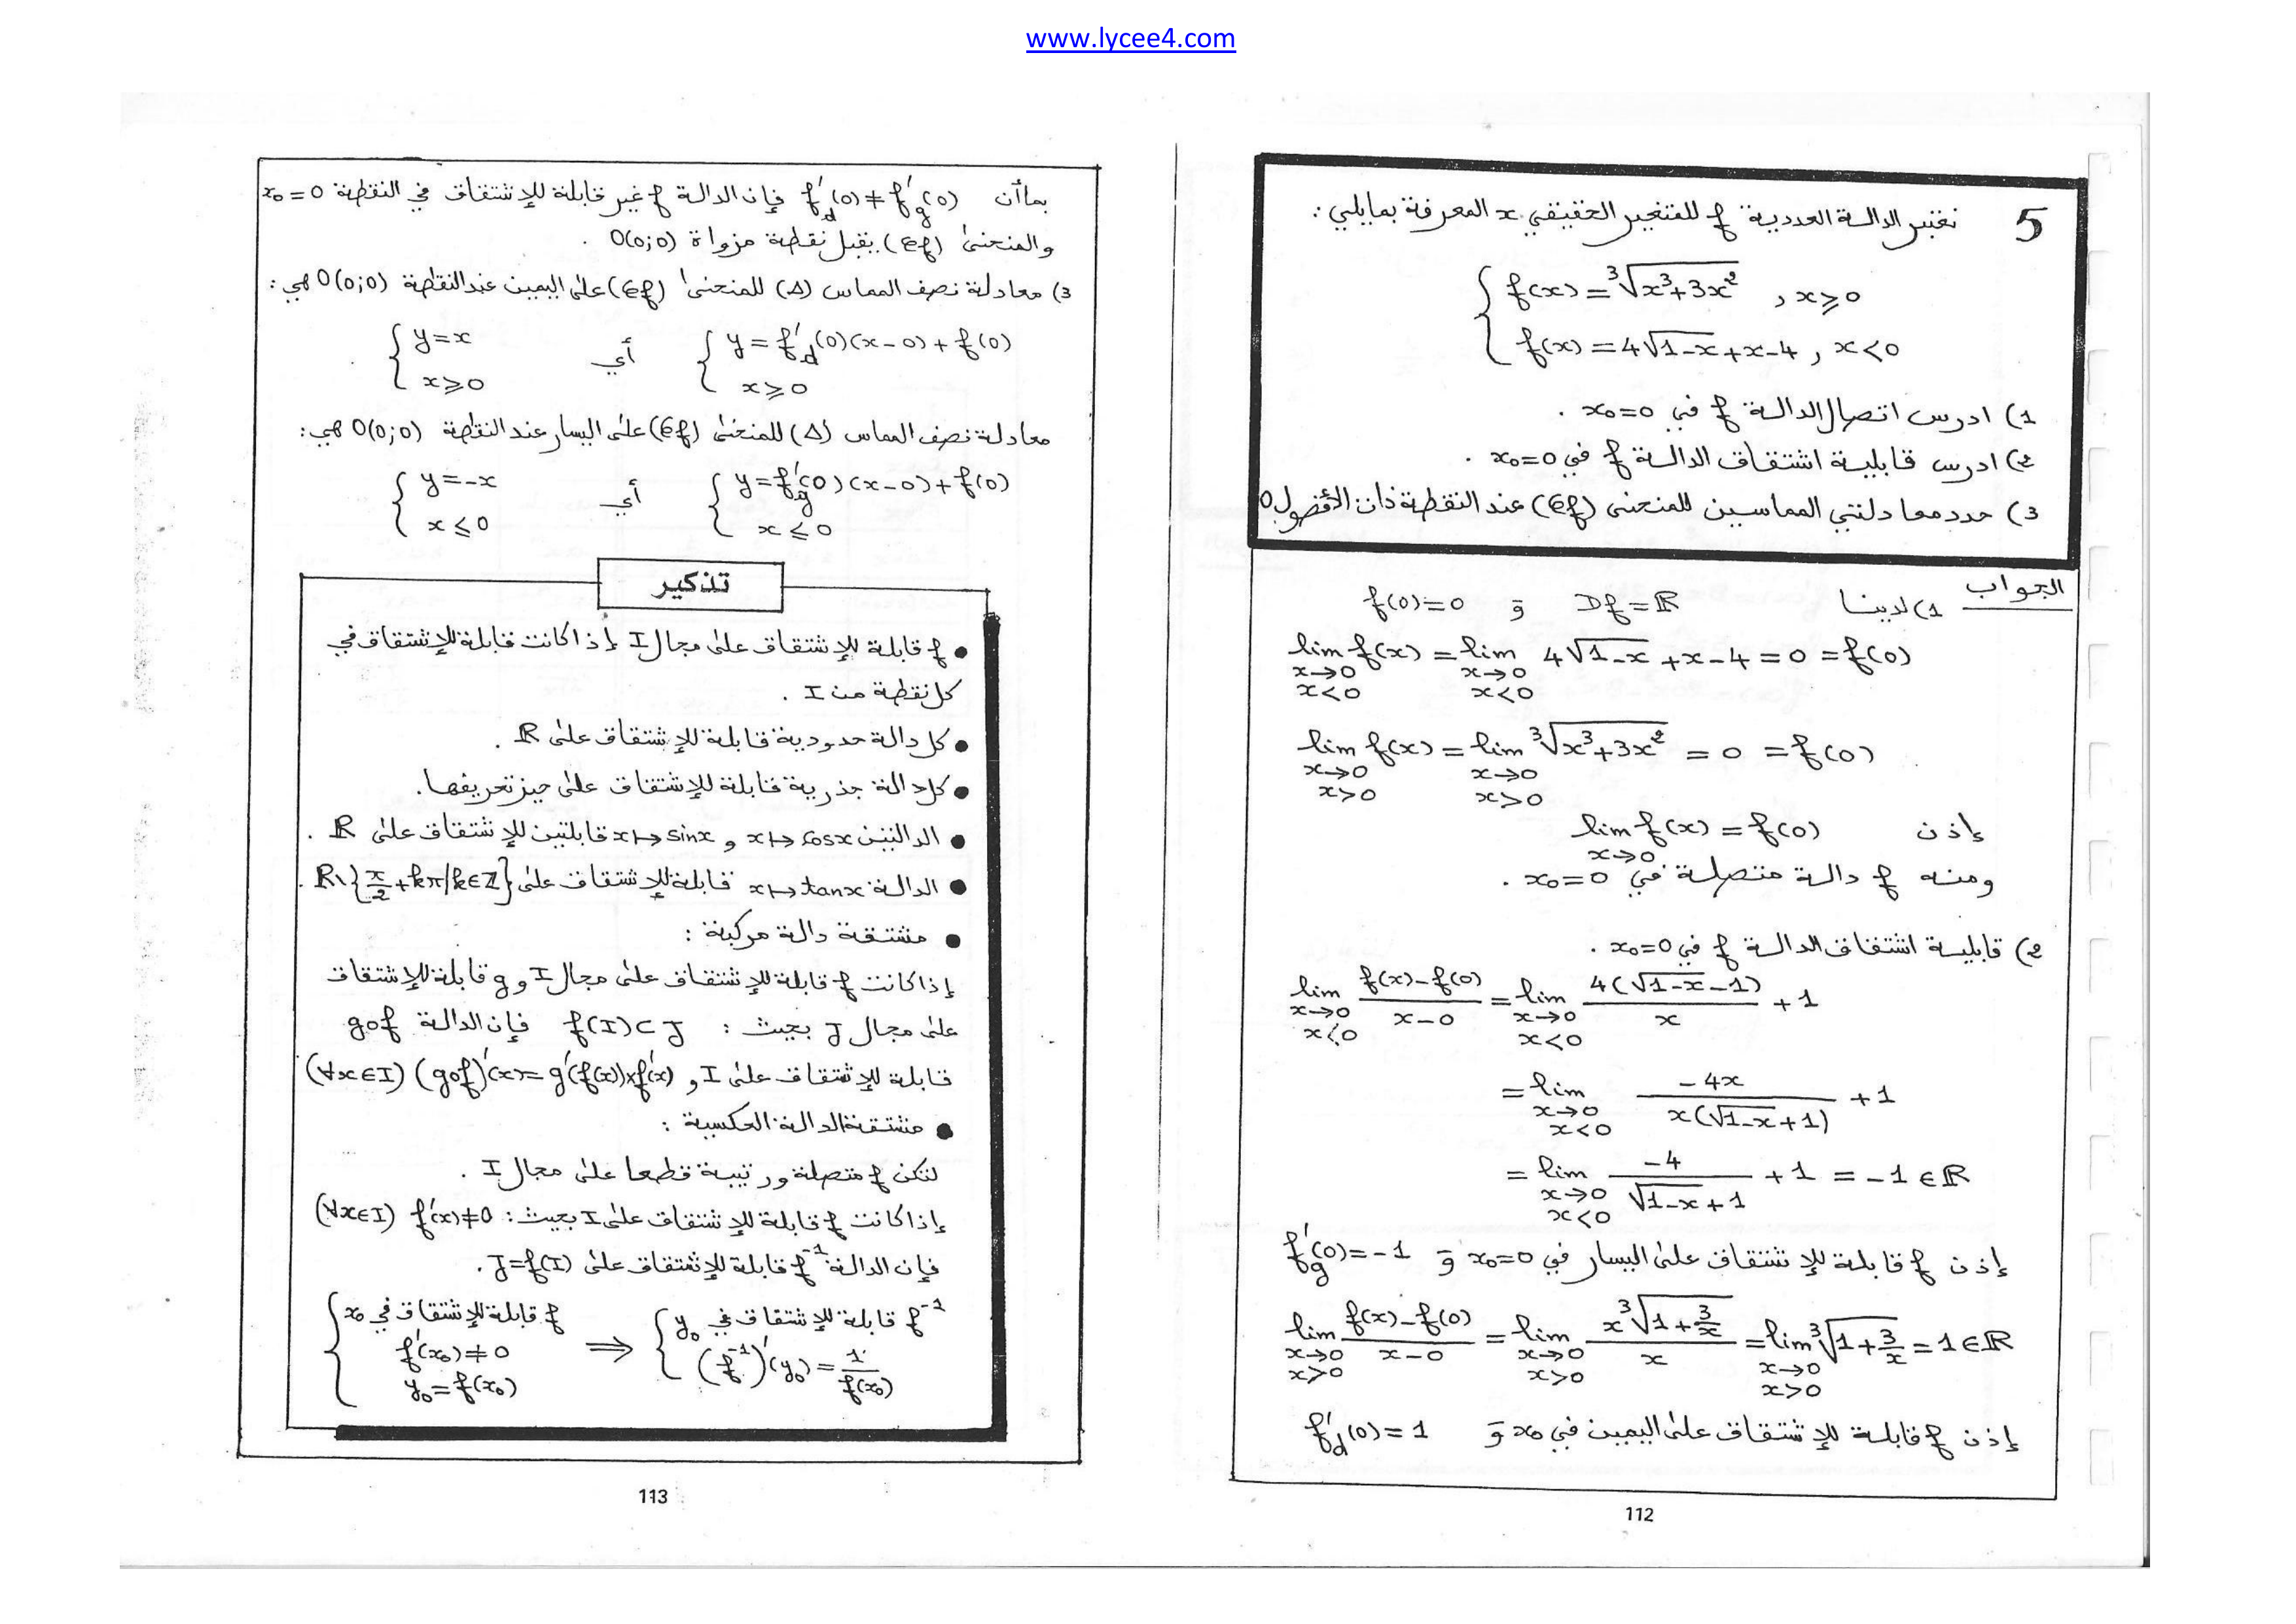 www.lycee4.com
5 نعتبر الدالة العددية f للمتغير الحقيقي x المعرفة بمايلي:
f(x) = ∛(x³+3x²) , x ≥ 0
f(x) = 4√(1-x) + x - 4 , x < 0
1) ادرس اتصال الدالة f في x₀=0 .
2) ادرس قابلية اشتقاق الدالة f في x₀=0 .
3) حدد معادلتي المماسين للمنحنى (Cf) عند النقطة ذات الأفصول 0
الجواب
1) لدينا Df = ℝ و f(0)=0
lim f(x) = lim 4√(1-x) + x - 4 = 0 = f(0)
x→0 x→0
x<0 x<0
lim f(x) = lim ∛(x³+3x²) = 0 = f(0)
x→0 x→0
x>0 x>0
إذن lim f(x) = f(0)
x→0
ومنه f دالة متصلة في x₀=0 .
2) قابلية اشتقاق الدالة f في x₀=0 .
lim (f(x)-f(0))/(x-0) = lim 4(√(1-x) -1)/x + 1
x→0 x→0
x<0 x<0
= lim -4x/(x(√(1-x)+1)) + 1
x→0
x<0
= lim -4/(√(1-x)+1) + 1 = -1 ∈ ℝ
x→0
x<0
إذن f قابلة للإشتقاق على اليسار في x₀=0 و f'g(0) = -1
lim (f(x)-f(0))/(x-0) = lim x∛(1+3/x)/x = lim ∛(1+3/x) = 1 ∈ ℝ
x→0 x→0 x→0
x>0 x>0 x>0
إذن f قابلة للإشتقاق على اليمين في x₀ و f'd(0) = 1
112
بماأن f'd(0) ≠ f'g(0) فإن الدالة f غير قابلة للإشتقاق في النقطة x₀=0
والمنحنى (Cf) يقبل نقطة مزواة O(0;0) .
3) معادلة نصف المماس (Δ) للمنحنى (Cf) على اليمين عند النقطة O(0;0) هي:
y = f'd(0)(x-0)+f(0) أي y = x
x ≥ 0 x ≥ 0
معادلة نصف المماس (Δ) للمنحنى (Cf) على اليسار عند النقطة O(0;0) هي:
y = f'g(0)(x-0)+f(0) أي y = -x
x ≤ 0 x ≤ 0
تذكير
• f قابلة للإشتقاق على مجال I إذا كانت قابلة للإشتقاق في
كل نقطة من I .
• كل دالة حدودية قابلة للإشتقاق على ℝ .
• كل دالة جذرية قابلة للإشتقاق على حيز تعريفها.
• الدالتين x↦cosx و x↦sinx قابلتين للإشتقاق على ℝ .
• الدالة x↦tanx قابلة للإشتقاق على ℝ\{π/2 + kπ/k∈ℤ} .
• مشتقة دالة مركبة :
إذا كانت f قابلة للإشتقاق على مجال I و g قابلة للإشتقاق
على مجال J بحيث : f(I)⊂J فإن الدالة gof
قابلة للإشتقاق على I و (∀x∈I) (gof)'(x) = g'(f(x))×f'(x)
• مشتقة الدالة العكسية :
لتكن f متصلة ورتيبة قطعا على مجال I .
إذا كانت f قابلة للإشتقاق على I بحيث: (∀x∈I) f'(x)≠0
فإن الدالة f⁻¹ قابلة للإشتقاق على J=f(I) .
f قابلة للإشتقاق في x₀ ⟹ f⁻¹ قابلة للإشتقاق في y₀
f'(x₀)≠0 (f⁻¹)'(y₀) = 1/f'(x₀)
y₀=f(x₀)
113